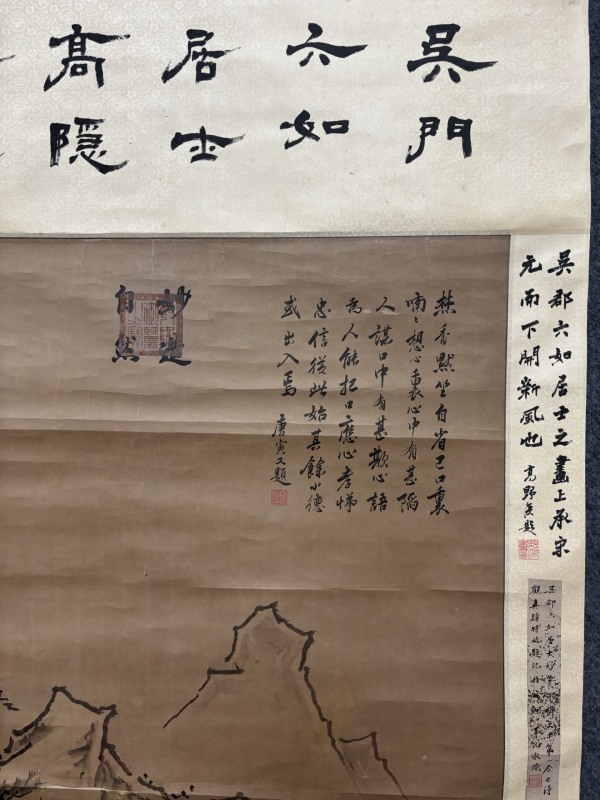 吳門
六如
居士
高隱
妙造
自然
焚香默坐自省己口裏
喃喃想心裏心中有甚陷
人謀口中有甚欺心語
為人能把口應心孝悌
忠信從此始其餘小德
或出入焉
唐寅又題
吳郡六如居士之畫上承宋
元而下開新風也
高野侯題
吳郡六如居士妙
觀真蹟